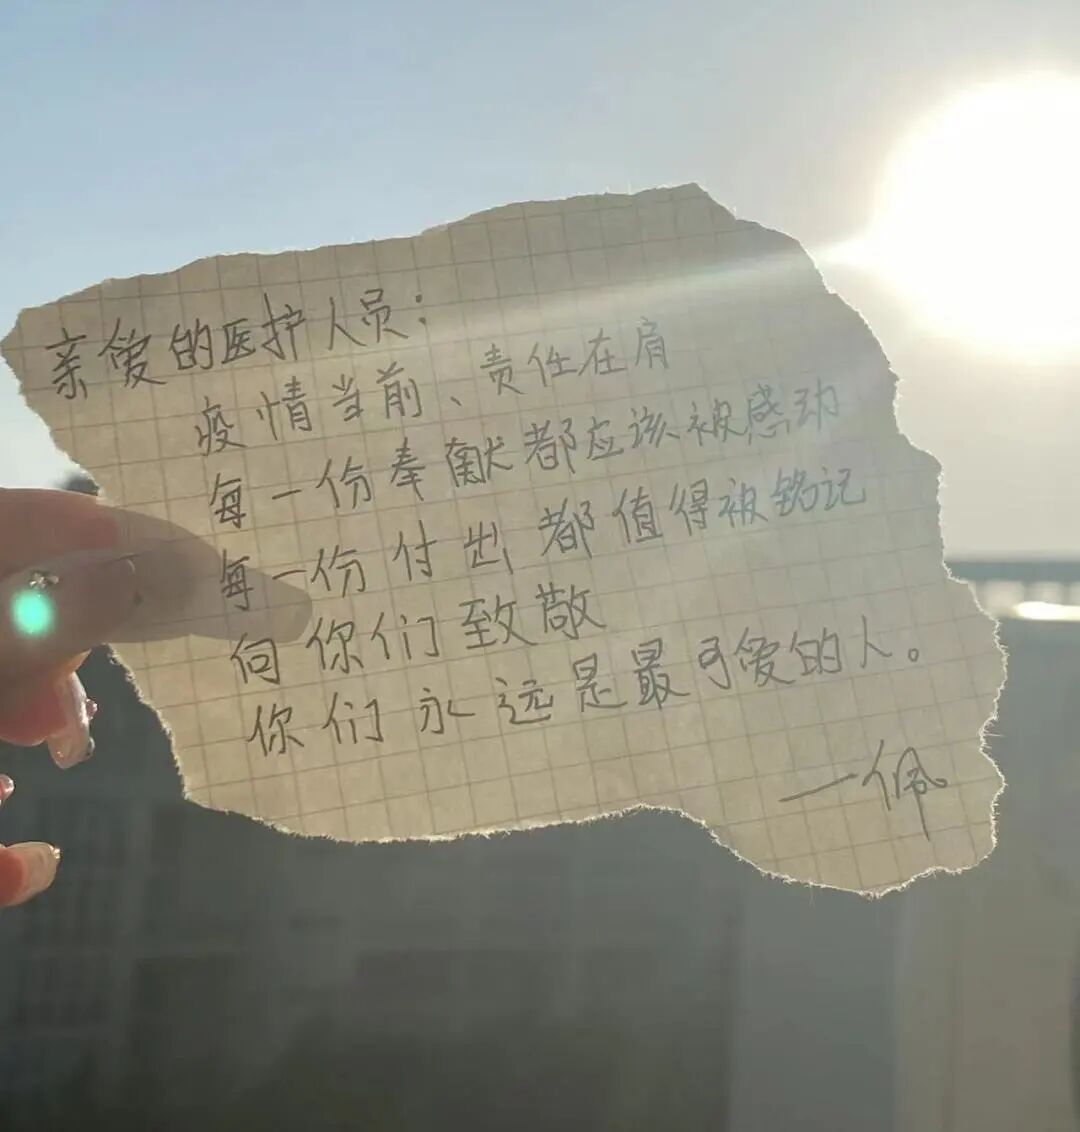 亲爱的医护人员：
疫情当前、责任在肩
每一份奉献都应该被感动
每一份付出都值得被铭记
向你们致敬
你们永远是最可爱的人。
一佩